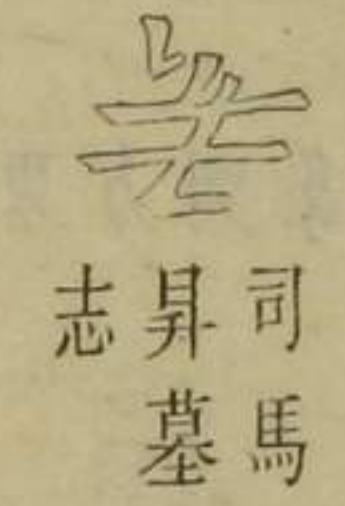 司馬
昇墓
志